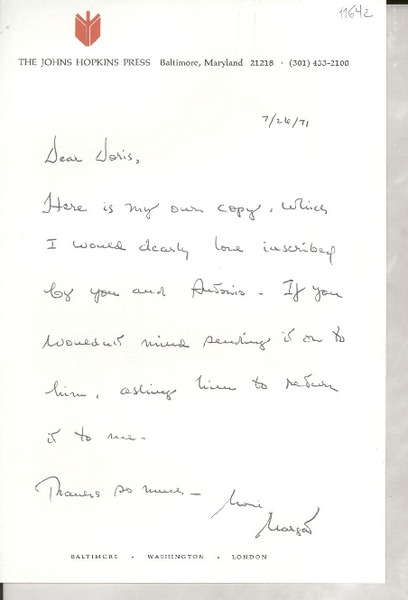 11642
THE JOHNS HOPKINS PRESS Baltimore, Maryland 21218 · (301) 433-2100
7/26/71
Dear Doris,
Here is my own copy, which
I would dearly love inscribed
by you and Antonio - If you
wouldn't mind sending it on to
him, asking him to return
it to me -
Thanks so much -
Margot
BALTIMORE · WASHINGTON · LONDON